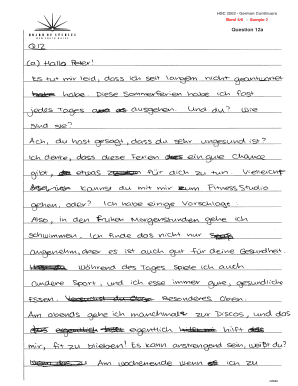 BOARD OF STUDIES
NEW SOUTH WALES
HSC 2002 - German Continuers
Band 5/6 - Sample 2
Question 12a
Q12
(a) Hallo Peter!
Es tut mir leid, dass ich seit langem nicht geantwortet
habe. Diese Sommerferien habe ich fast
jedes Tages ausgehen. Und du? Wie
sind sie?
Ach, du hast gesagt, dass du sehr ungesund ist?
Ich denke, dass diese Ferien eine gute Chance
gibt, etwas für dich zu tun. Vielleicht
kannst du mit mir zum Fitness Studio
gehen, oder? Ich habe einige Vorschläge.
Also, in den frühen Morgenstunden gehe ich
schwimmen. Ich finde das nicht nur
angenehm, aber es ist auch gut für deine Gesundheit.
Während des Tages spiele ich auch
andere Sport, und ich esse immer gute, gesundliche
Essen. Besonderes Obren.
Am abends gehe ich manchmal zur Discos, und das
eigentlich hilft
mir, fit zu blieben! Es kann anstrengend sein, weißt du?
Am Wochenende wenn ich zu